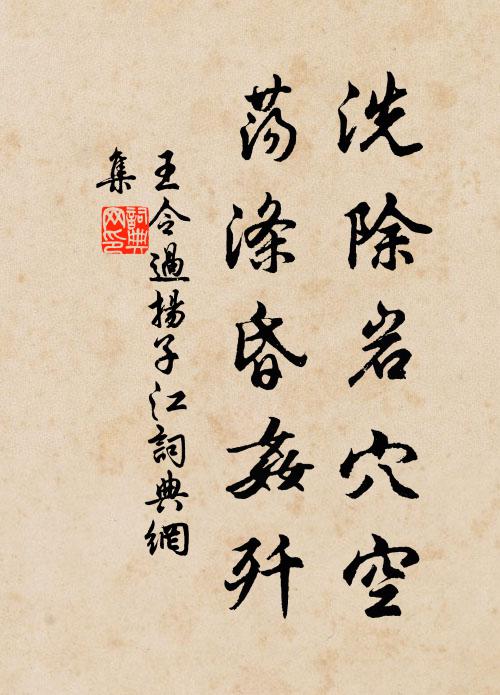 洗除岩穴空
荡涤昏姦歼
王令過揚子江詞典網
集
詞典
网印